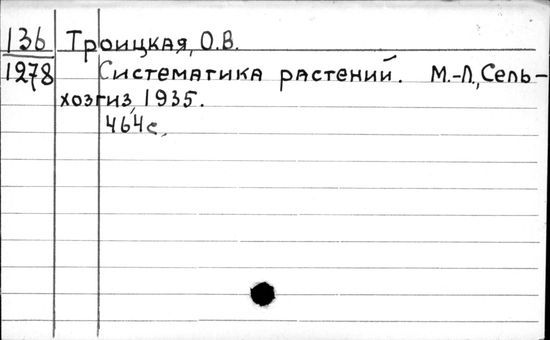 136 Троицкая, О.В.
1278 Систематика растений. М.-Л., Сель-
хозгиз, 1935.
464с.